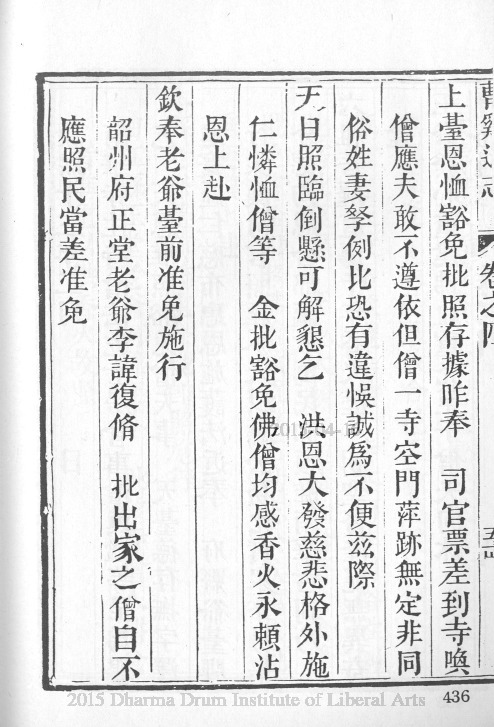 曹谿通志 卷之四
上臺恩恤豁免批照存據昨奉 司官票差到寺喚
僧應夫敢不遵依但僧一寺空門萍跡無定非同
俗姓妻孥例比恐有違悞誠爲不便兹際
天日照臨倒懸可解懇乞 洪恩大發慈悲格外施
仁憐恤僧等 金批豁免佛僧均感香火永賴沾
恩上赴
欽奉老爺臺前准免施行
韶州府正堂老爺李諱復脩 批出家之僧自不
應照民當差准免
436
2015 Dharma Drum Institute of Liberal Arts